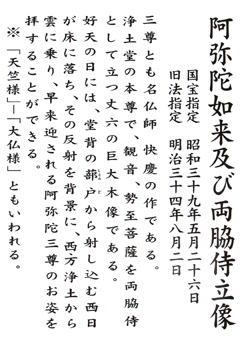 阿弥陀如来及び両脇侍立像
国宝指定　昭和三十九年五月二十六日
旧法指定　明治三十四年八月二日
三尊とも名仏師　快慶の作である。
浄土堂の本尊で、観音、勢至菩薩を両脇侍
として立つ丈六の巨大木像である。
好天の日には、堂背の蔀戸から射し込む西日
が床に落ち、その反射を背景に、西方浄土から
雲に乗り、早来迎される阿弥陀三尊のお姿を
拝することができる。
※「天竺様」−「大仏様」ともいわれる。